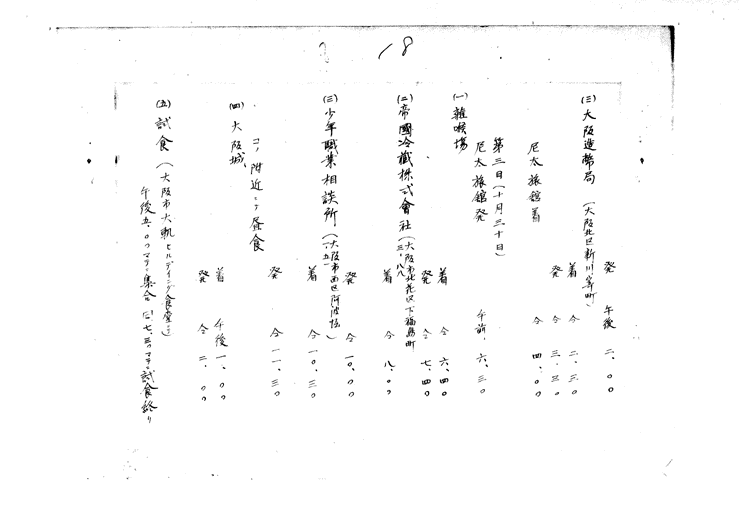 18
発 午後 二、〇〇
(三) 大阪造幣局 (大阪北区新川崎町)
着 仝 二、三〇
発 仝 三、三〇
尼太旅館着 仝 四、〇〇
第三日(十月三十日)
尼太旅館発 午前、六、三〇
(一) 雑喉場
着 仝 六、四〇
発 仝 七、四〇
(二) 帝國冷蔵株式會社(大阪市此花区下福島町
着 仝 八、〇〇
発 仝 一〇、〇〇
(三) 少年職業相談所(大阪市西区阿波座)
着 仝 一〇、三〇
発 仝 一一、三〇
コノ附近ニテ昼食
(四) 大阪城、
着 午後 一、〇〇
発 仝 二、〇〇
(五) 試食 (大阪市大軌ビルディング食堂ニテ)
午後五、〇〇マデニ集合 七、三〇マデニ試食終リ